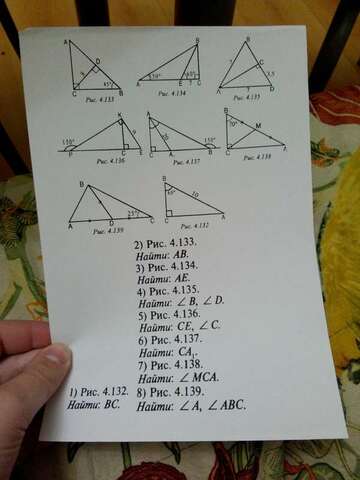 A
D
C
45°
B
Рис. 4.133
B
A
E
C
Рис. 4.134
B
7
C
3,5
A
7
D
Рис. 4.135
K
9
150°
P
C
E
Рис. 4.136
A
20
150°
C
A₁
B
Рис. 4.137
B
70°
M
C
A
Рис. 4.138
B
A
D
25°
C
Рис. 4.139
B
60°
10
C
A
Рис. 4.132
2) Рис. 4.133.
Найти: AB.
3) Рис. 4.134.
Найти: AE.
4) Рис. 4.135.
Найти: ∠ B, ∠ D.
5) Рис. 4.136.
Найти: CE, ∠ C.
6) Рис. 4.137.
Найти: CA₁.
7) Рис. 4.138.
Найти: ∠ MCA.
1) Рис. 4.132.
Найти: BC.
8) Рис. 4.139.
Найти: ∠ A, ∠ ABC.